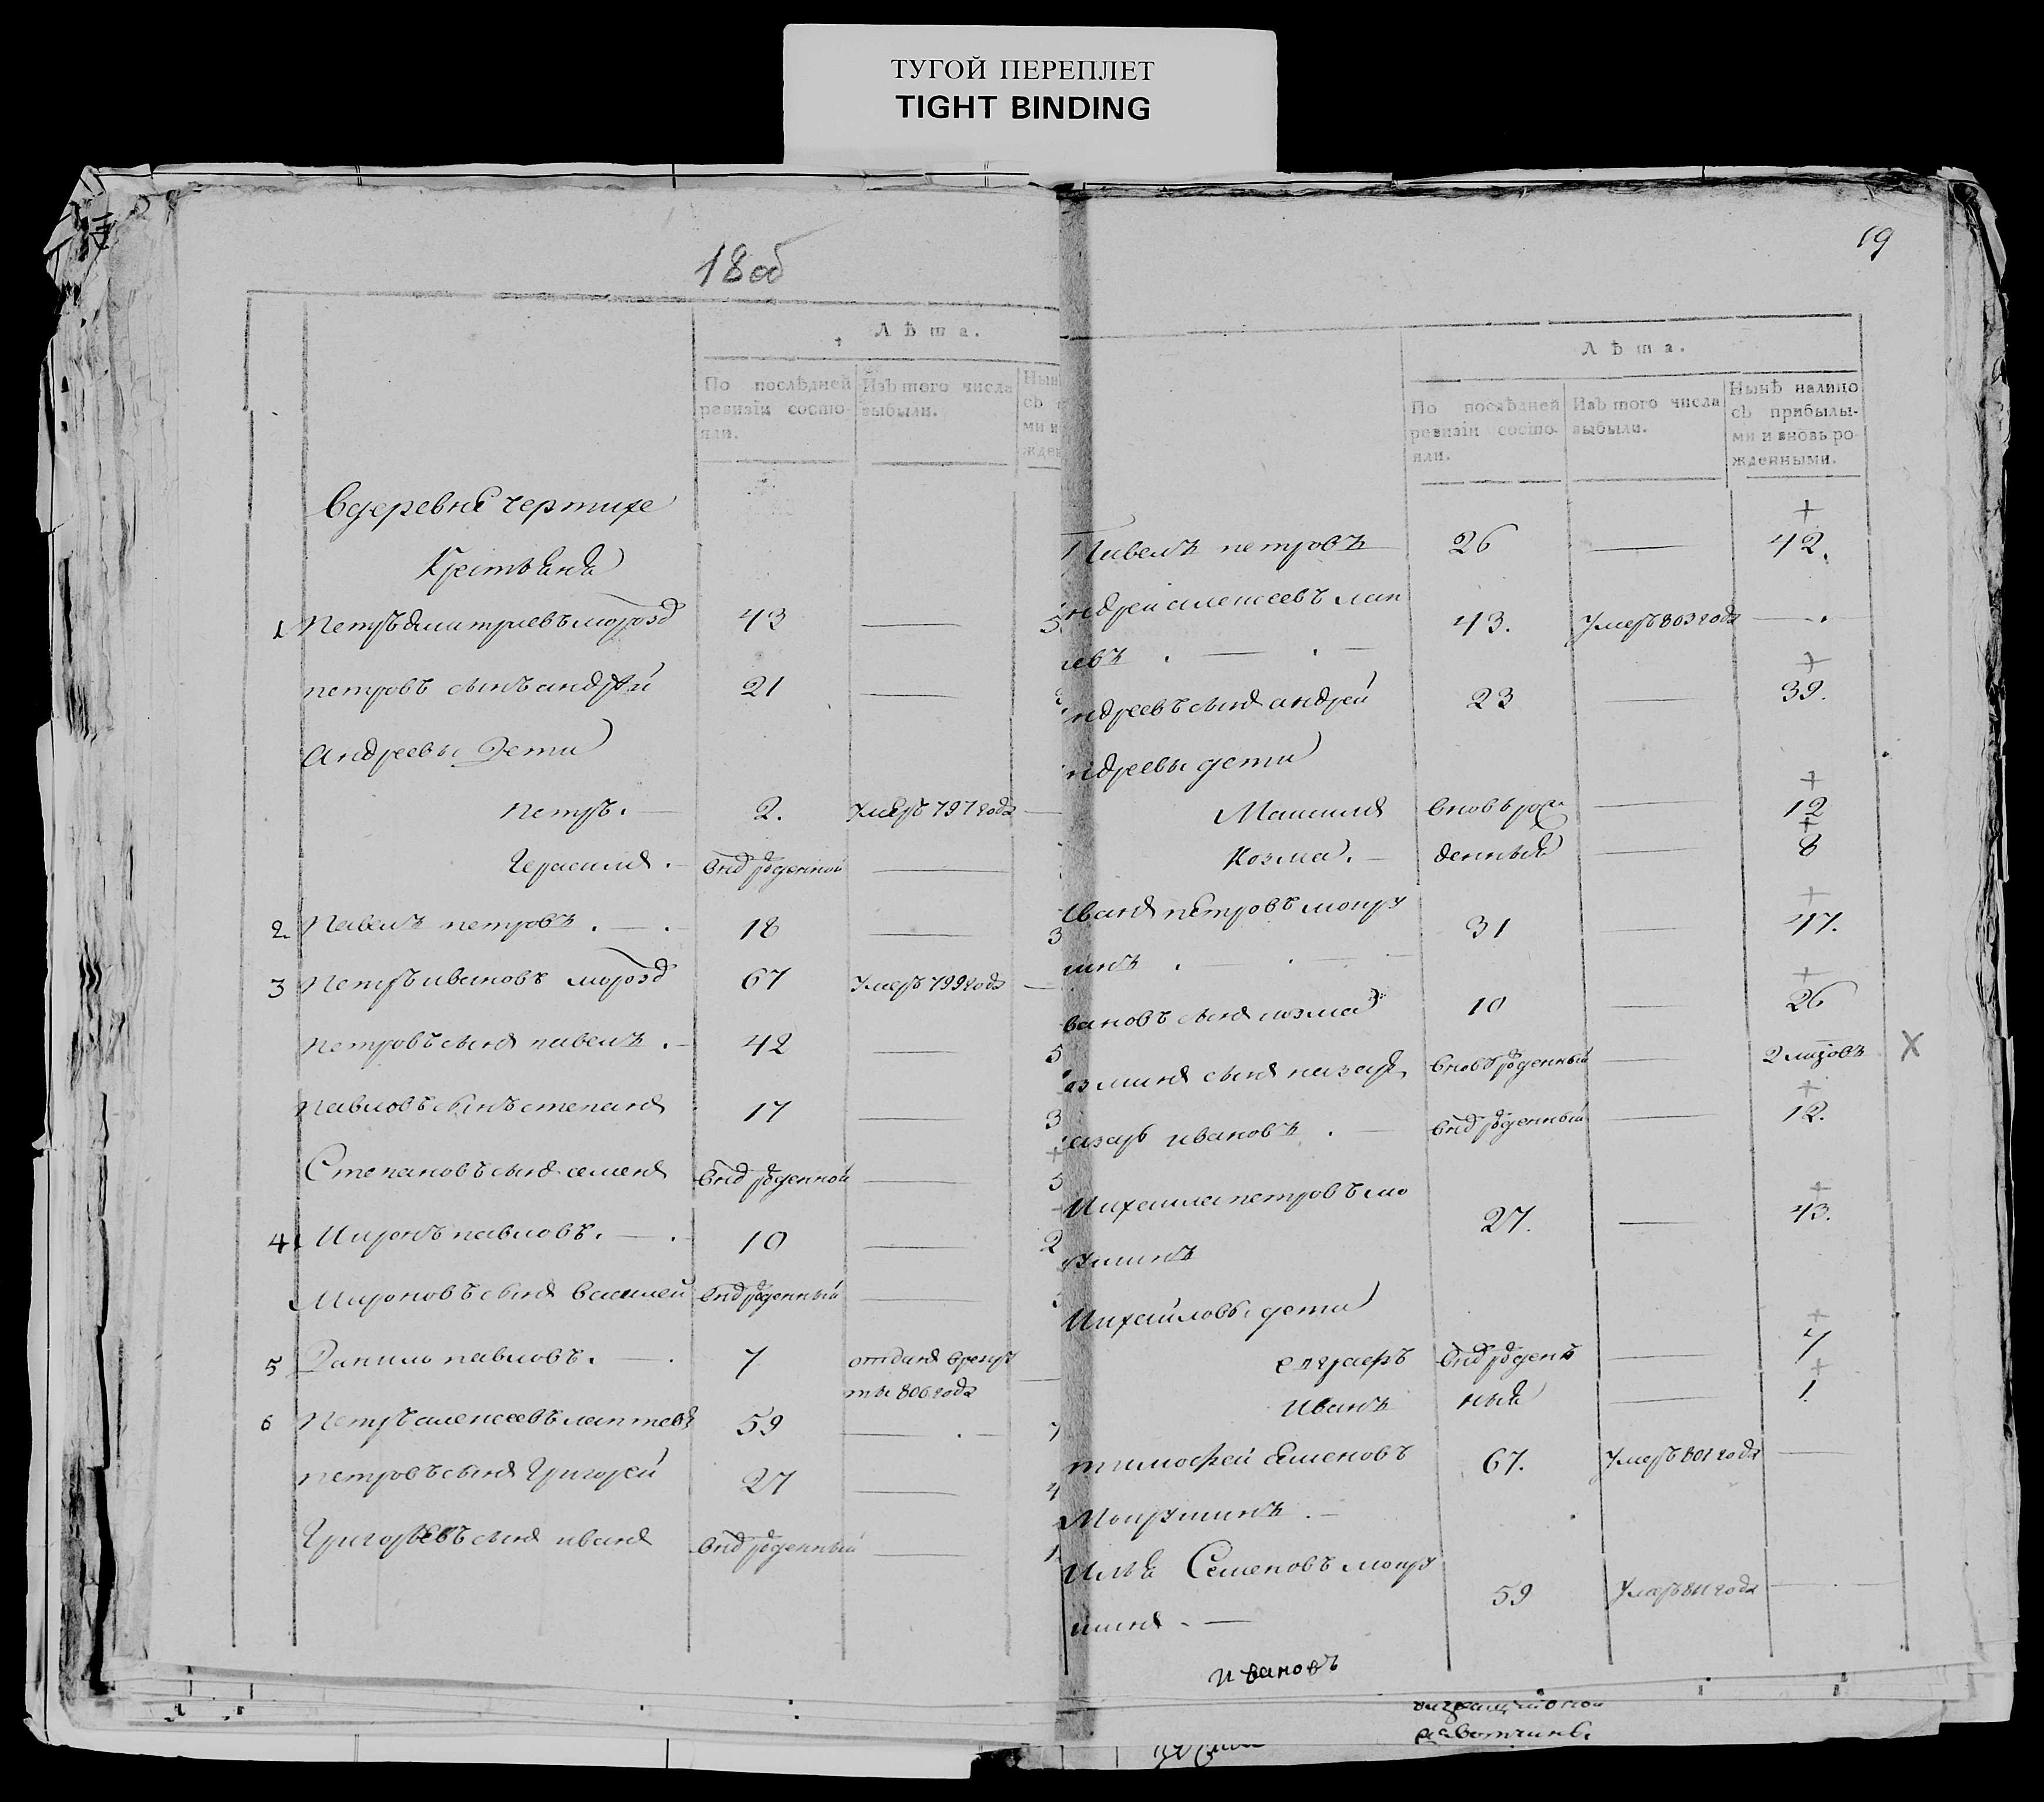 ТУГОЙ ПЕРЕПЛЕТ
TIGHT BINDING
18об
Лѣта.
По послѣдней ревизіи состояли.
Изъ того числа выбыли.
Вдеревне чертихе
Крестьяня
1 Петръ дмитриевъ морозо 43 —
петровъ сынъ андрей 21 —
Андреевы Дети
петръ. 2. умеръ 797 года
Герасимъ. внов рожденной —
2 Павелъ петровъ. 18 —
3 Петръ ивановъ морозо 67 умеръ 799 года
петровъ сынъ павелъ. 42 —
павловъ сынъ степанъ 17 —
Степановъ сынъ семенъ внов рожденной —
4 Миронъ павловъ. 10 —
Мироновъ сынъ василей внов рожденный —
5 Данило павловъ. 7 отданъ врекру
ты 806 года
6 Петръ алексеевъ лаптевъ 59 —
петровъ сынъ Григорей 27 —
Григорьевъ сынъ иванъ внов рожденный —
19
Лѣта.
По послѣдней ревизіи состояли.
Изъ того числа выбыли.
Нынѣ налицо съ прибылыми и вновь рожденными.
Павелъ петровъ 26 — 42.
ндрей алексеевъ лап
43. умеръ 803 года —
евъ
ндреевъ сынъ андрей 23 — 39.
ндреевы дети
вновь рож — 12
Козма. денный — 8
Иванъ петровъ
31 — 47.
шинъ
вановъ сынъ козма 10 — 26
озминъ сынъ назаръ вновь рожденный —
азаръ ивановъ внов рожденный — 12.
Михаила петровъ мо
27. — 43.
шинъ
Михайловы дети
евграфъ внов рожден — 7
Иванъ ный — 1.
тимофей семеновъ 67. умеръ 801 года —
Илья Семеновъ
59 умеръ 811 года —
шинъ
Ивановъ